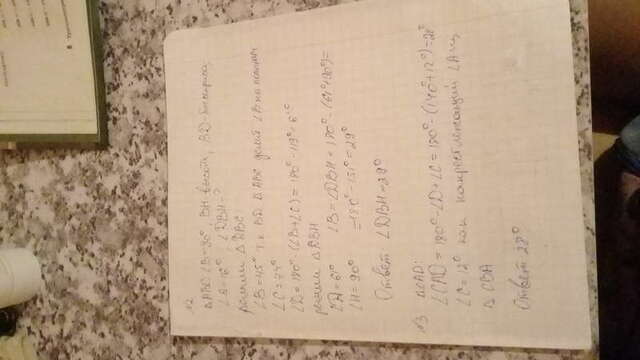 №2
ΔABC ∠B=90°, BH-высота, BD-биссектриса
∠A=16°, ∠DBH-?
ΔDBC
∠B=45° т.к BD ΔABC делит ∠B на
∠C=74°
∠D=180°-(∠B+∠C)=180°-119°=61°
ΔDBH
∠D=61° ∠B=∠DBH=180°-(61°+90°)=
∠H=90° =180°-151°=29°
Ответ: ∠DBH=29°
№3 ΔCAD:
∠CAD=180°-∠D+∠C=180°-(140°+12°)=28°
∠C=12° как накрестлежащий ∠A из
Δ CBA
Ответ 28°